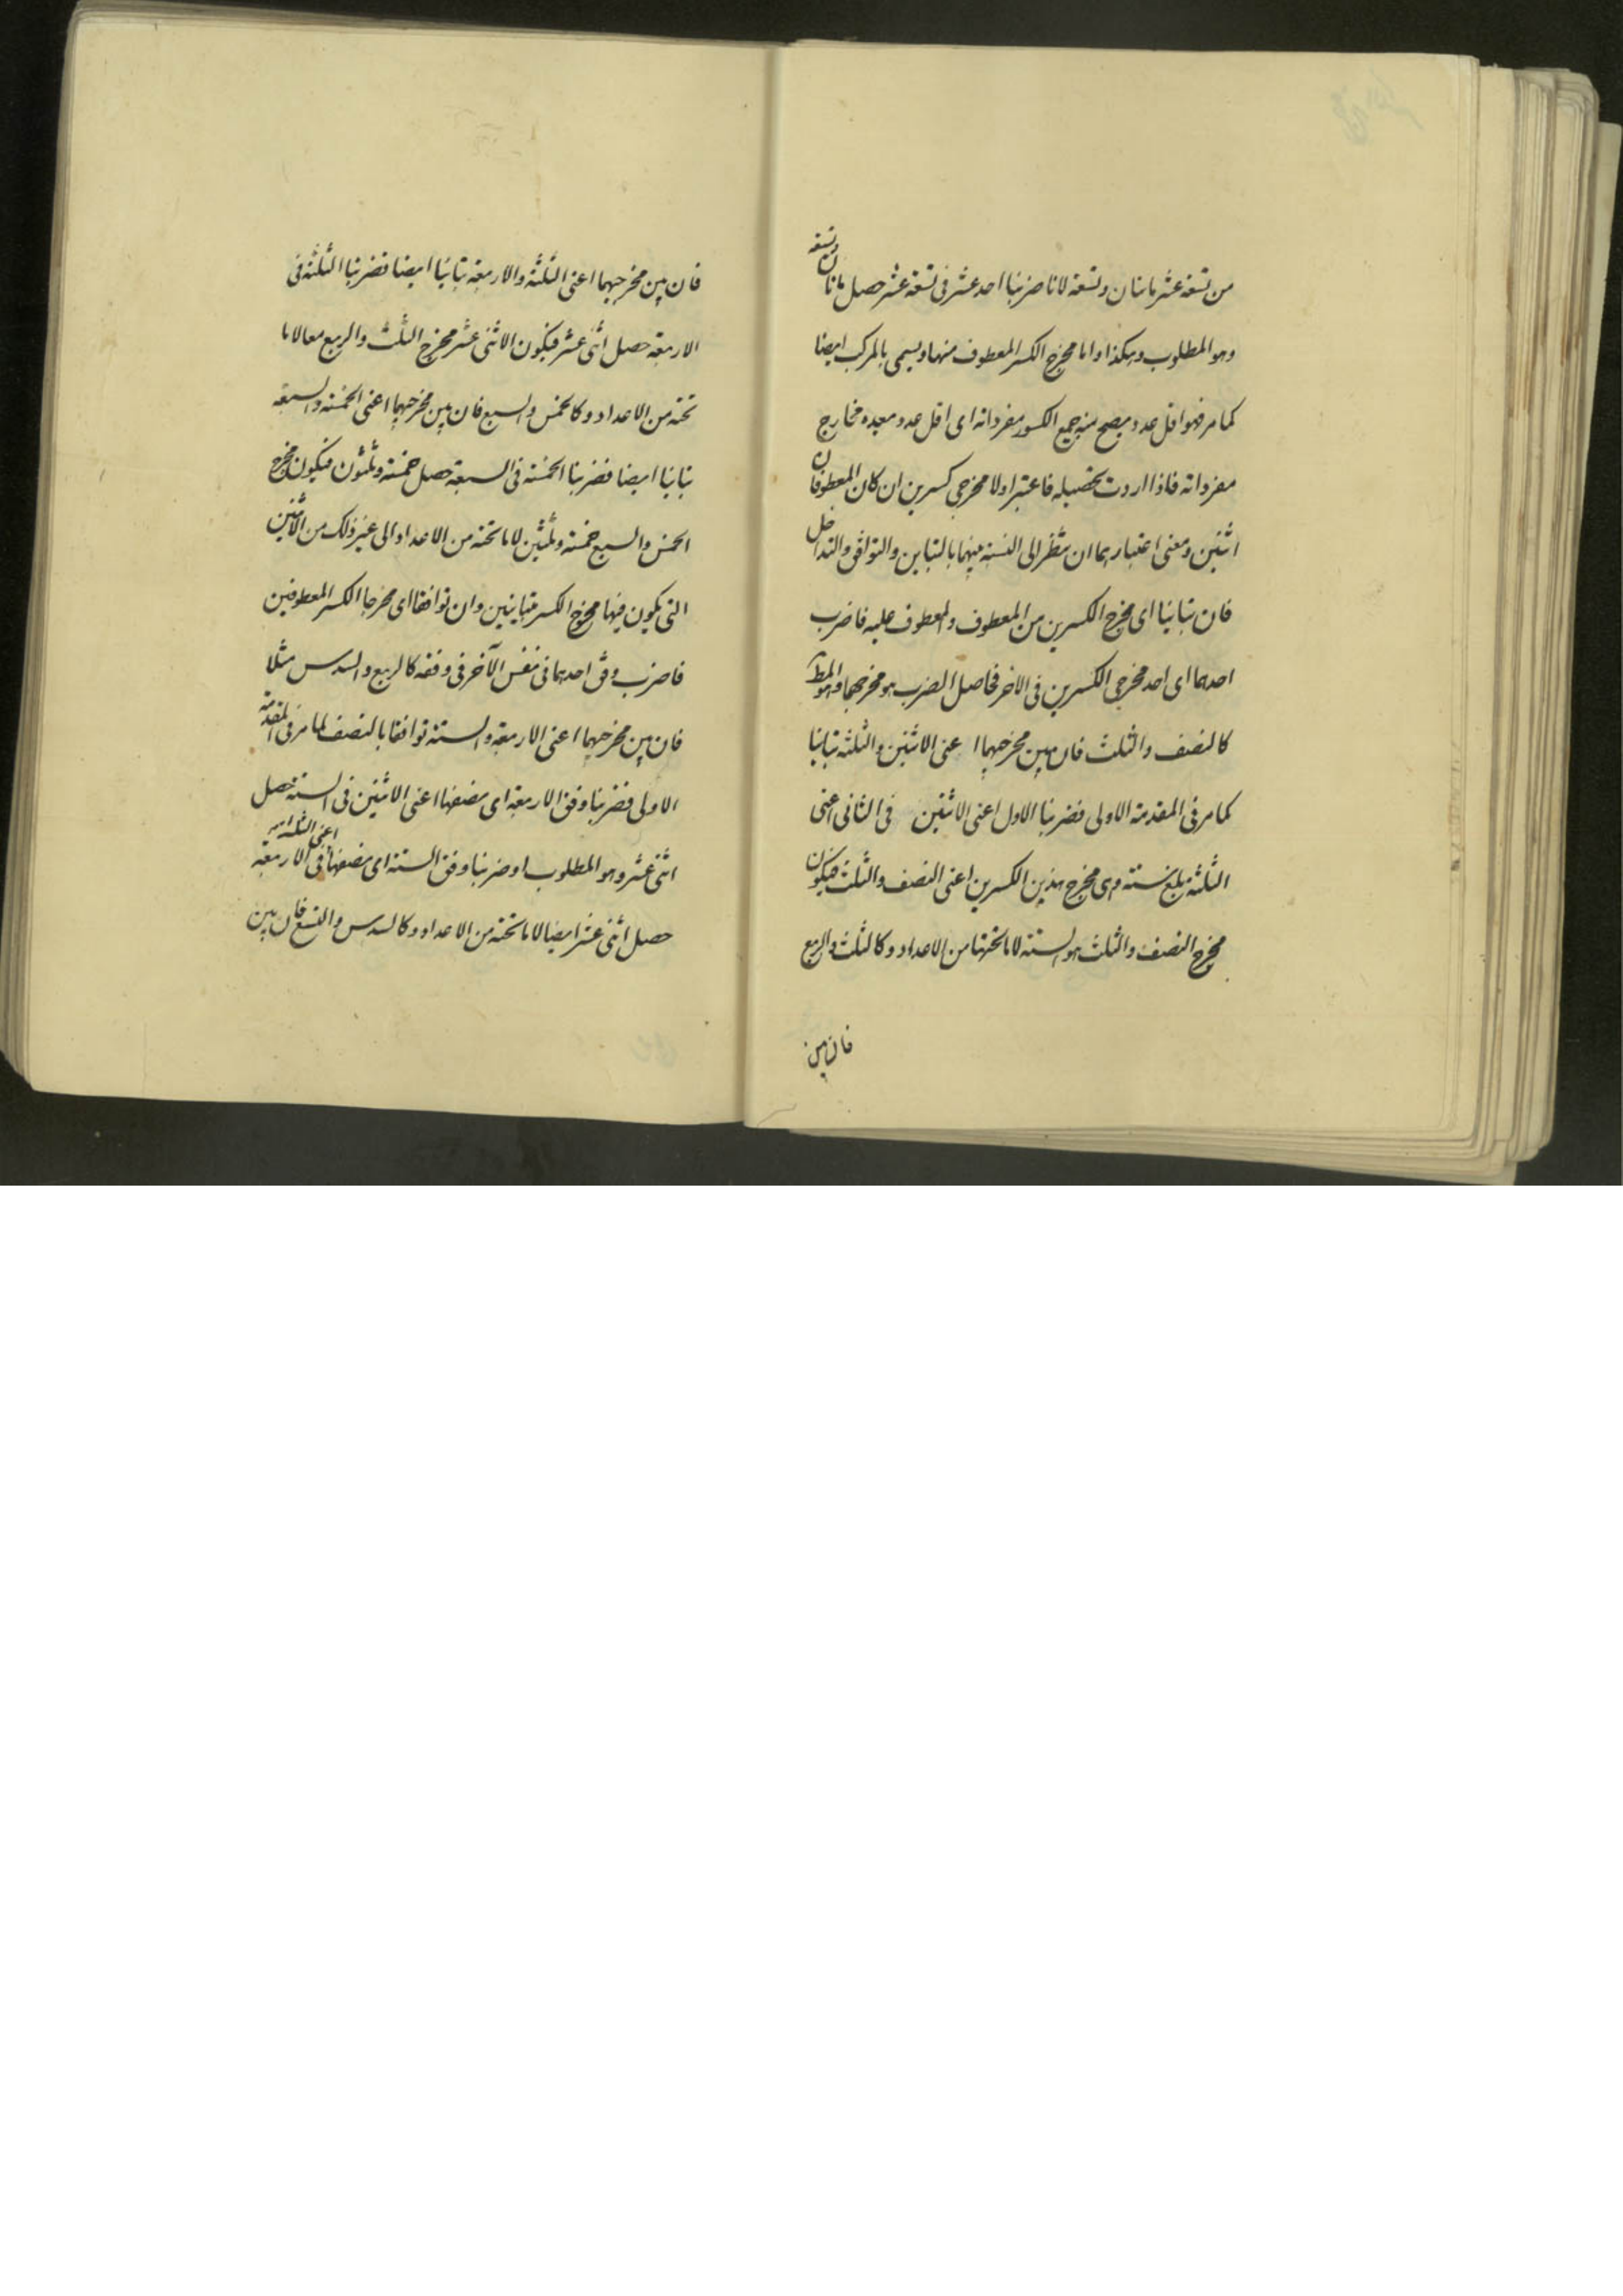 من تسعة عشر مائتان وتسعة لانا ضربنا احد عشر فى تسعة عشر حصل مائتان وتسعة
وهو المطلوب وهكذا واما مخرج الكسر المعطوف منها ويسمى بالمركب ايضا
كما مر فهو اقل عدد يصح منه جميع الكسور مفرداته اى اقل عدد يعده مخارج
مفرداته فاذا اردت تحصيله فاعتبر اولا مخرجى كسرين ان كان المعطوفان
اثنين ومعنى اعتبارهما ان تنظر الى النسبة بينهما بالتباين والتوافق والتداخل
فان تباينا اى مخرج الكسرين من المعطوف والمعطوف عليه فاضرب
احدهما اى احد مخرجى الكسرين فى الاخر فحاصل الضرب هو مخرجهما وهو المط
كالنصف والثلث فان بين مخرجهما اعنى الاثنين والثلثة تباينا
كما مر فى المقدمة الاولى فضربنا الاول اعنى الاثنين فى الثانى اعنى
الثلثة بلغ ستة وهى مخرج هذين الكسرين اعنى النصف والثلث فيكون
مخرج النصف والثلث هو الستة لا ما تحتها من الاعداد وكالثلث والربع
فان بين
فان بين مخرجيهما اعنى الثلثة والاربعة تباينا ايضا فضربنا الثلثة فى
الاربعة حصل اثنى عشر فيكون الاثنى عشر مخرج الثلث والربع معا لا ما
تحته من الاعداد وكالخمس والسبع فان بين مخرجيهما اعنى الخمسة والسبعة
تباينا ايضا فضربنا الخمسة فى السبعة حصل خمسة وثلثون فيكون مخرج
الخمس والسبع خمسة وثلثين لا ما تحته من الاعداد الى غير ذلك من الاثنين
التى يكون فيها مخرج الكسر متباينين وان توافقا اى مخرجا الكسر المعطوفين
فاضرب وفق احدهما فى نفس الآخر فى وفقه كالربع والسدس مثلا
فان بين مخرجيهما اعنى الاربعة والستة توافقا بالنصف لما مر فى المقدمة
الاولى فضربنا وفق الاربعة اى نصفها اعنى الاثنين فى الستة حصل
اثنى عشر وهو المطلوب او ضربنا وفق الستة اى نصفها اعنى الثلثة فى الاربعة
حصل اثنى عشر ايضا لا ما تحته من الاعداد وكالسدس والتسع فان بين